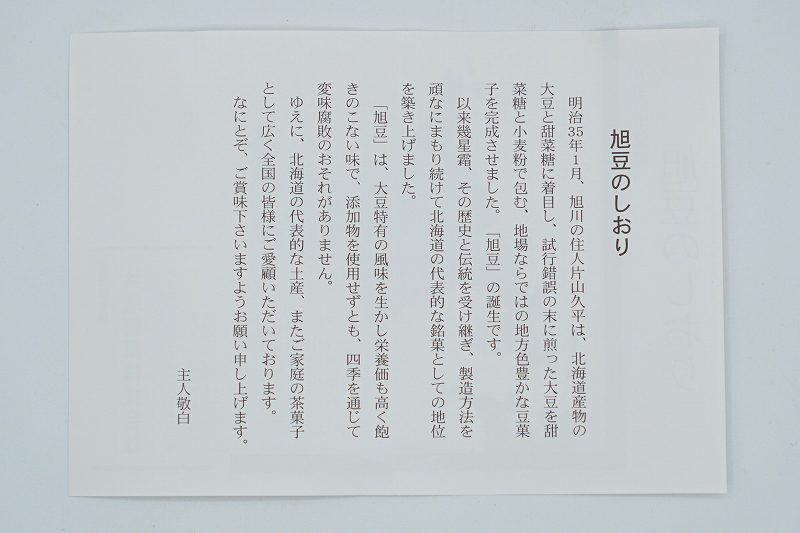 旭豆のしおり
明治35年1月、旭川の住人片山久平は、北海道産物の
大豆と甜菜糖に着目し、試行錯誤の末に煎った大豆を甜
菜糖と小麦粉で包む、地場ならではの地方色豊かな豆菓
子を完成させました。「旭豆」の誕生です。
以来幾星霜、その歴史と伝統を受け継ぎ、製造方法を
頑なにまもり続けて北海道の代表的な銘菓としての地位
を築き上げました。
「旭豆」は、大豆特有の風味を生かし栄養価も高く飽
きのこない味で、添加物を使用せずとも、四季を通じて
変味腐敗のおそれがありません。
ゆえに、北海道の代表的な土産、またご家庭の茶菓子
として広く全国の皆様にご愛顧いただいております。
なにとぞ、ご賞味下さいますようお願い申し上げます。
主人敬白